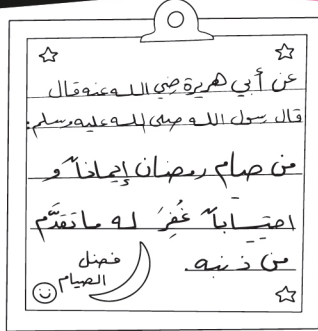 عن أبي هريرة رضي الله عنه قال
قال رسول الله صلى الله عليه وسلم:
من صام رمضان إيماناً و
احتساباً غُفِرَ له ما تقدَّم
من ذنبه.
فضل
الصيام